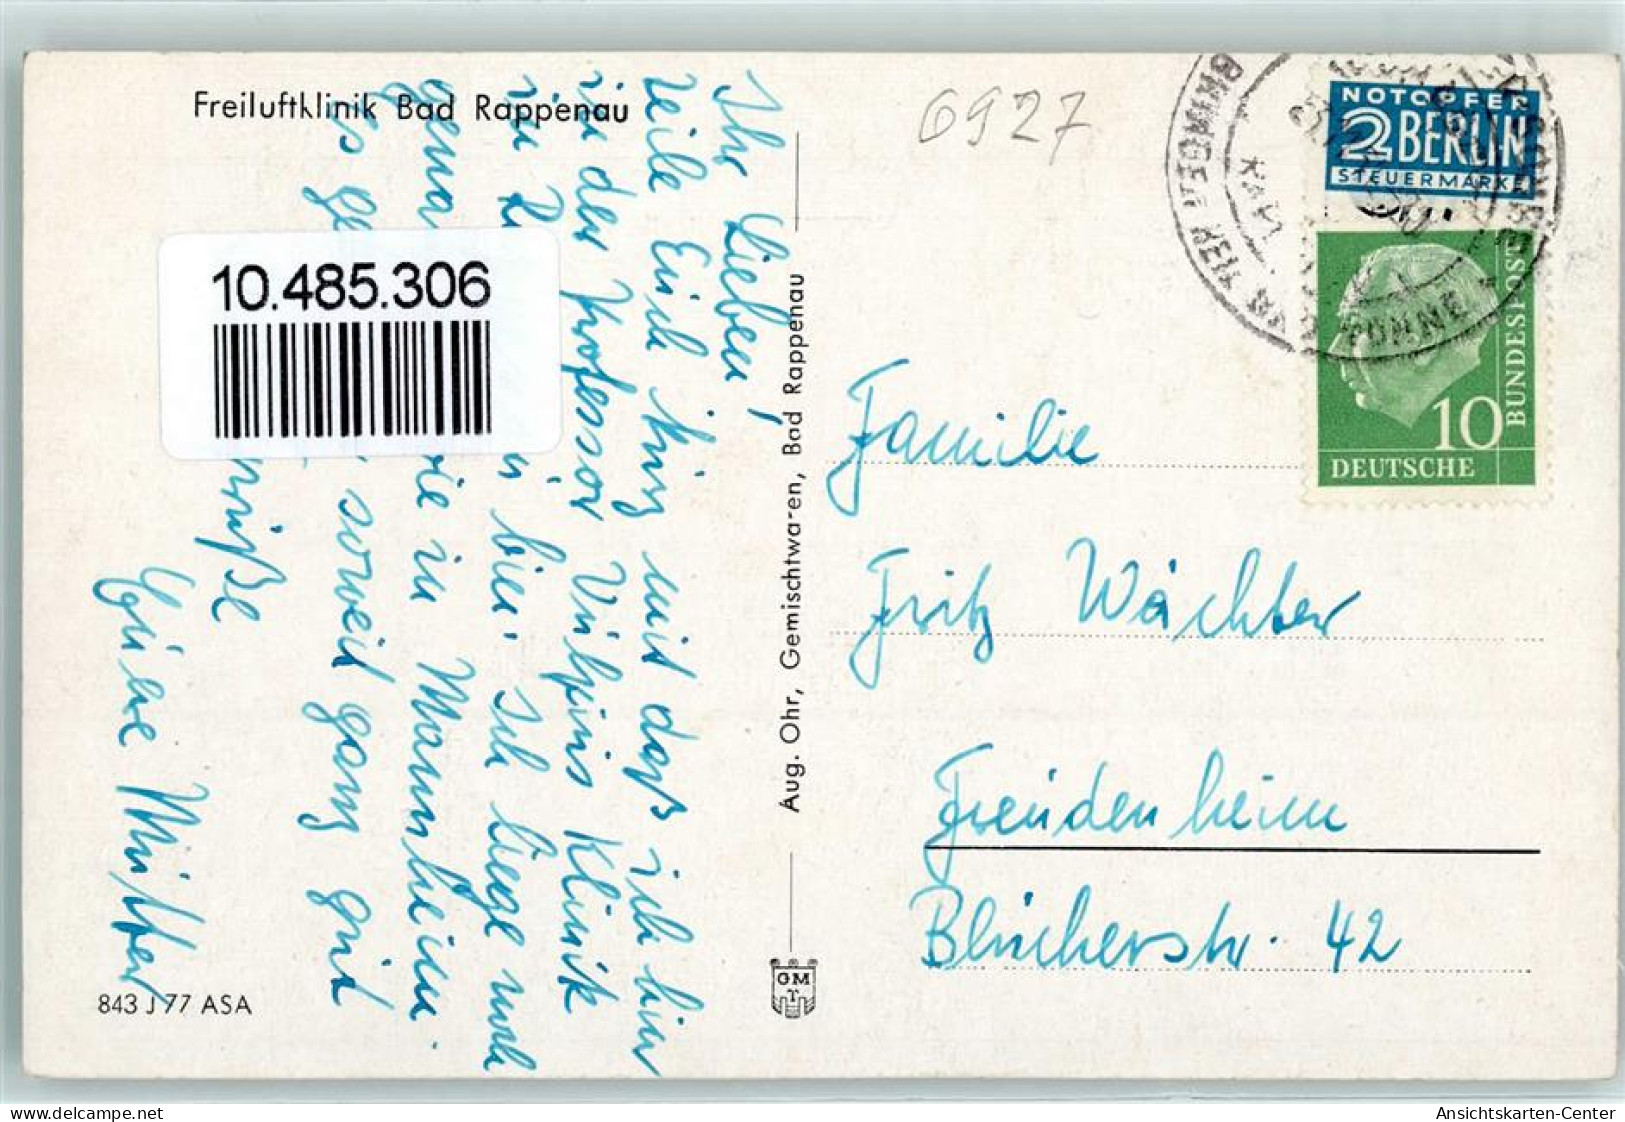 Freiluftklinik Bad Rappenau
6927
NOTOPFER
2 BERLIN
STEUERMARKE
10
DEUTSCHE
BUNDESPOST
10.485.306
Ihr Lieben!
Teile Euch kurz mit daß ich hier
in der Professor Vulpius Klinik
in bin. Ich liege noch
genau wie in Mannheim.
Es geht soweit ganz gut
Grüße
Eure Mutter
Aug. Ohr, Gemischtwaren, Bad Rappenau
Familie
Fritz Wächter
Freudenheim
Blücherstr. 42
GM
843 J 77 ASA
delcampe.net
Ansichtskarten-Center